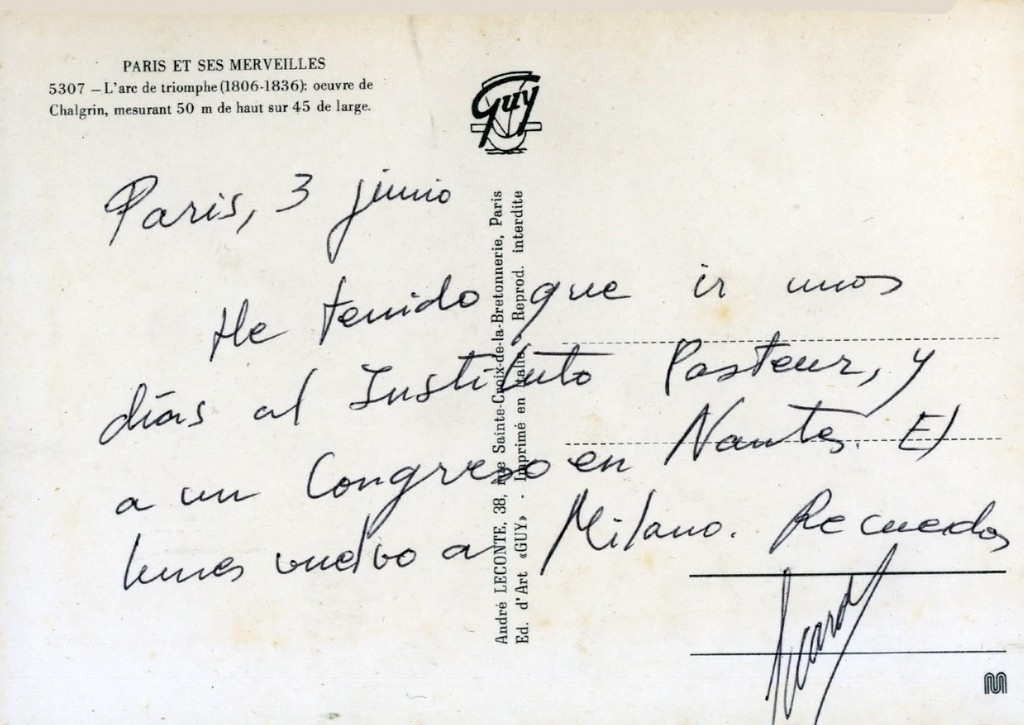 PARIS ET SES MERVEILLES
5307 – L'arc de triomphe (1806-1836): oeuvre de
Chalgrin, mesurant 50 m de haut sur 45 de large.
Guy
Paris, 3 junio
He tenido que ir unos
días al Instituto Pasteur, y
a un Congreso en Nantes. El
lunes vuelvo a Milano. Recuerdos
André LECONTE, 38, rue Sainte-Croix-de-la-Bretonnerie, Paris
Ed. d'Art «GUY» - Imprimé en Italie - Reprod. interdite
M